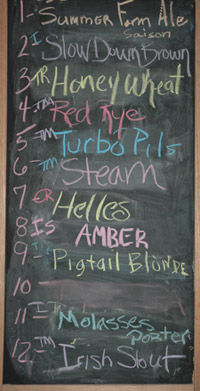 1- Summer Farm Ale
Saison
2- I Slow Down Brown
3- TR Honey Wheat
4- TM Red Rye
5- TM Turbo Pils
6- TM Steam
7- CR Helles
8- IS AMBER
9- Pigtail Blonde
10
11- Molasses Porter
12- TM Irish Stout